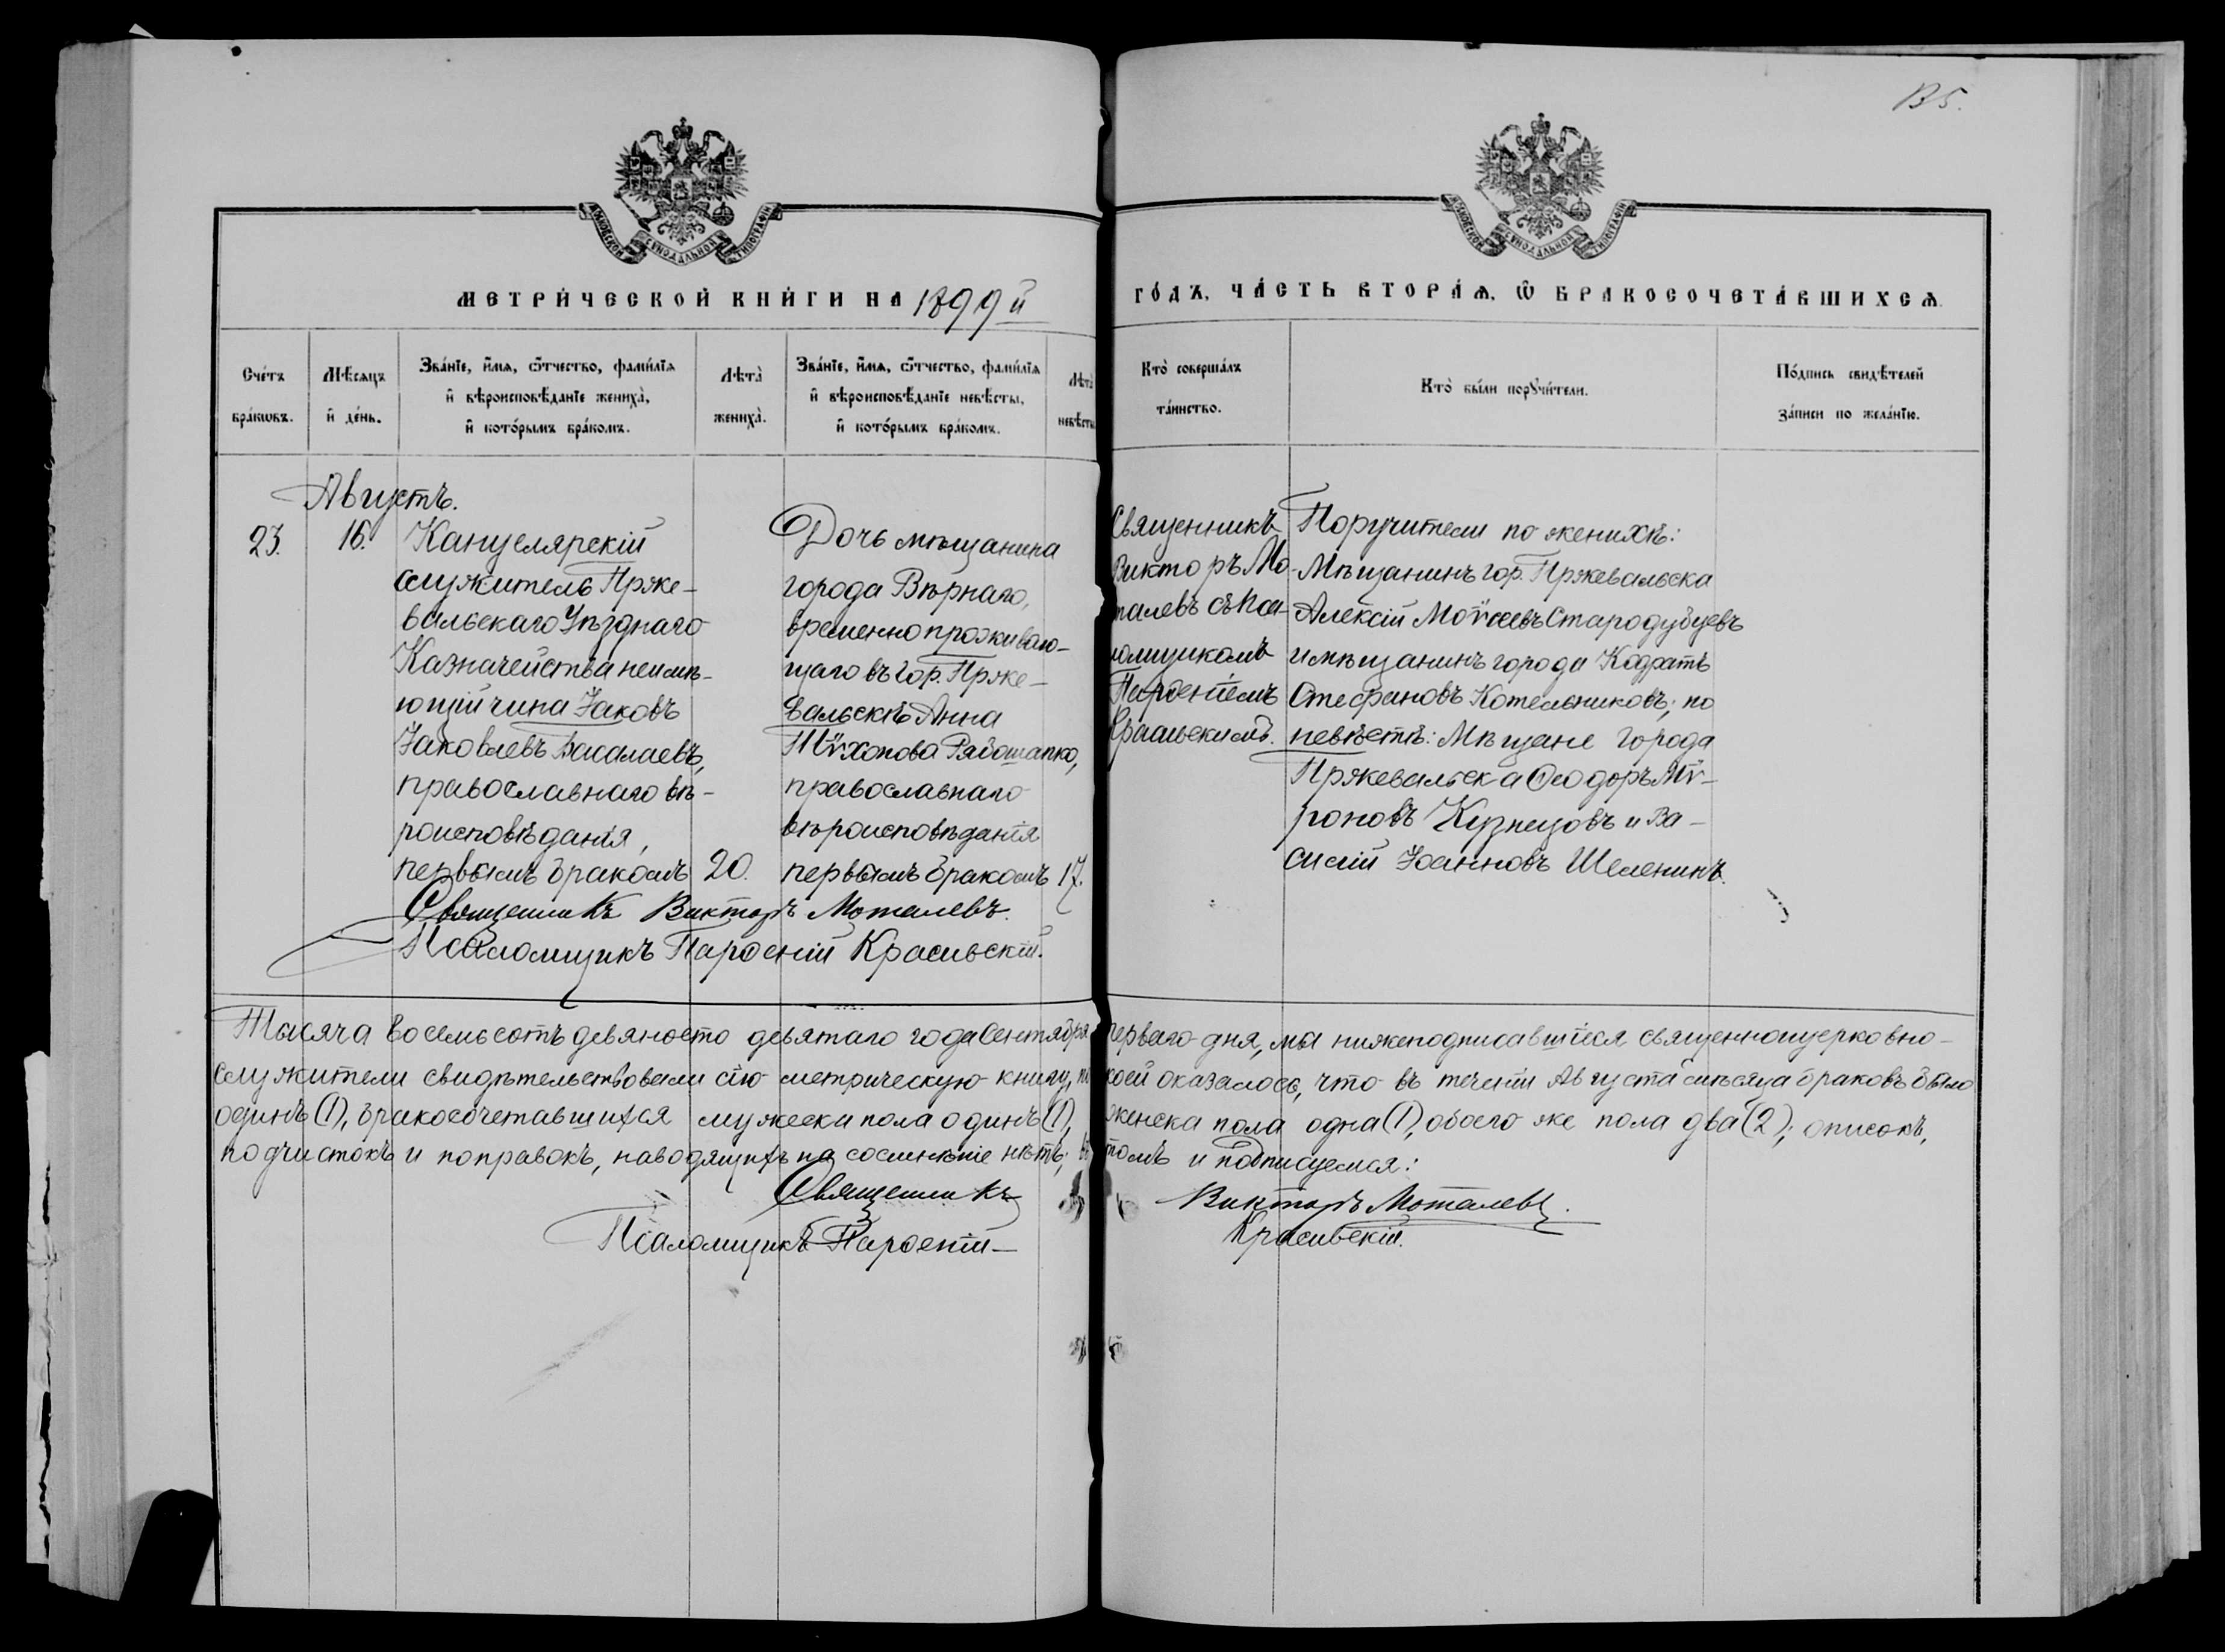 135.
МОСКОВСКОЙ СѴНОДАЛЬНОЙ ТИПОГРАФІИ
МОСКОВСКОЙ СѴНОДАЛЬНОЙ ТИПОГРАФІИ
МЕТРИ́ЧЕСКОЙ КНИ́ГИ НА 1899 й
ГО́ДЪ, ЧА́СТЬ ВТОРА́Ѧ, Ѿ БРАКОСОЧЕТА́ВШИХСѦ.
Сче́тъ
бра́кѡвъ.
Мѣ́сѧцъ
и҆ де́нь.
Зва́нїе, и҆́мѧ, ѻ҆́тчество, фами́лїѧ
и҆ вѣроисповѣ́данїе жениха̀,
и҆ кото́рымъ бра́комъ.
Лѣта̀
жениха̀.
Зва́нїе, и҆́мѧ, ѻ҆́тчество, фами́лїѧ
и҆ вѣроисповѣ́данїе невѣ́сты,
и҆ кото́рымъ бра́комъ.
Лѣта̀
невѣ́сты
Кто̀ соверша́лъ
та́инство.
Кто̀ бы́ли порꙋчи́тели.
По́дпись свидѣ́телей
за́писи по жела́нїю.
Августъ.
23.
16.
Канцелярскій
служитель Прже-
вальскаго Уѣзднаго
Казначейства неимѣ-
ющій чина Іаковъ
Іаковлевъ Басалаевъ,
православнаго вѣ-
роисповѣданія,
первымъ бракомъ
20.
Дочь мѣщанина
города Вѣрнаго,
временно проживаю-
щаго въ гор. Прже-
вальскѣ Анна
Тѵхонова Рябошапко,
православнаго
вѣроисповѣданія
первымъ бракомъ
17.
Священникъ
Викторъ Мо-
талевъ съ Пса-
ломщикомъ
Парѳеніемъ
Поручители по женихѣ:
Мѣщанинъ гор. Пржевальска
Алексій Моѵсеевъ Стародубцевъ
и мѣщанинъ города Кодратъ
Стефановъ Котельниковъ; по
невѣстѣ: Мѣщане города
Пржевальска Ѳеодоръ Мѵ-
роновъ Кузнецовъ и Ва-
силій Іоанновъ Шеленинъ.
Священникъ Викторъ Моталевъ.
Псаломщикъ Парѳеній Красивскій.
Тысяча восемьсотъ девяносто девятаго года Сентября перваго дня, мы нижеподписавшіеся священноцерковно-
служители свидѣтельствовали сію метрическую книгу, по коей оказалось, что въ теченіи Августа мѣсяца браковъ было
одинъ (1), бракосочетавшихся мужеска пола одинъ (1), женска пола одна (1), обоего же пола два (2); описокъ,
подчистокъ и поправокъ, наводящихъ на сомнѣніе нѣтъ; въ томъ и подписуемся:
Священникъ Викторъ Моталевъ.
Псаломщикъ Парѳеній Красивскій.